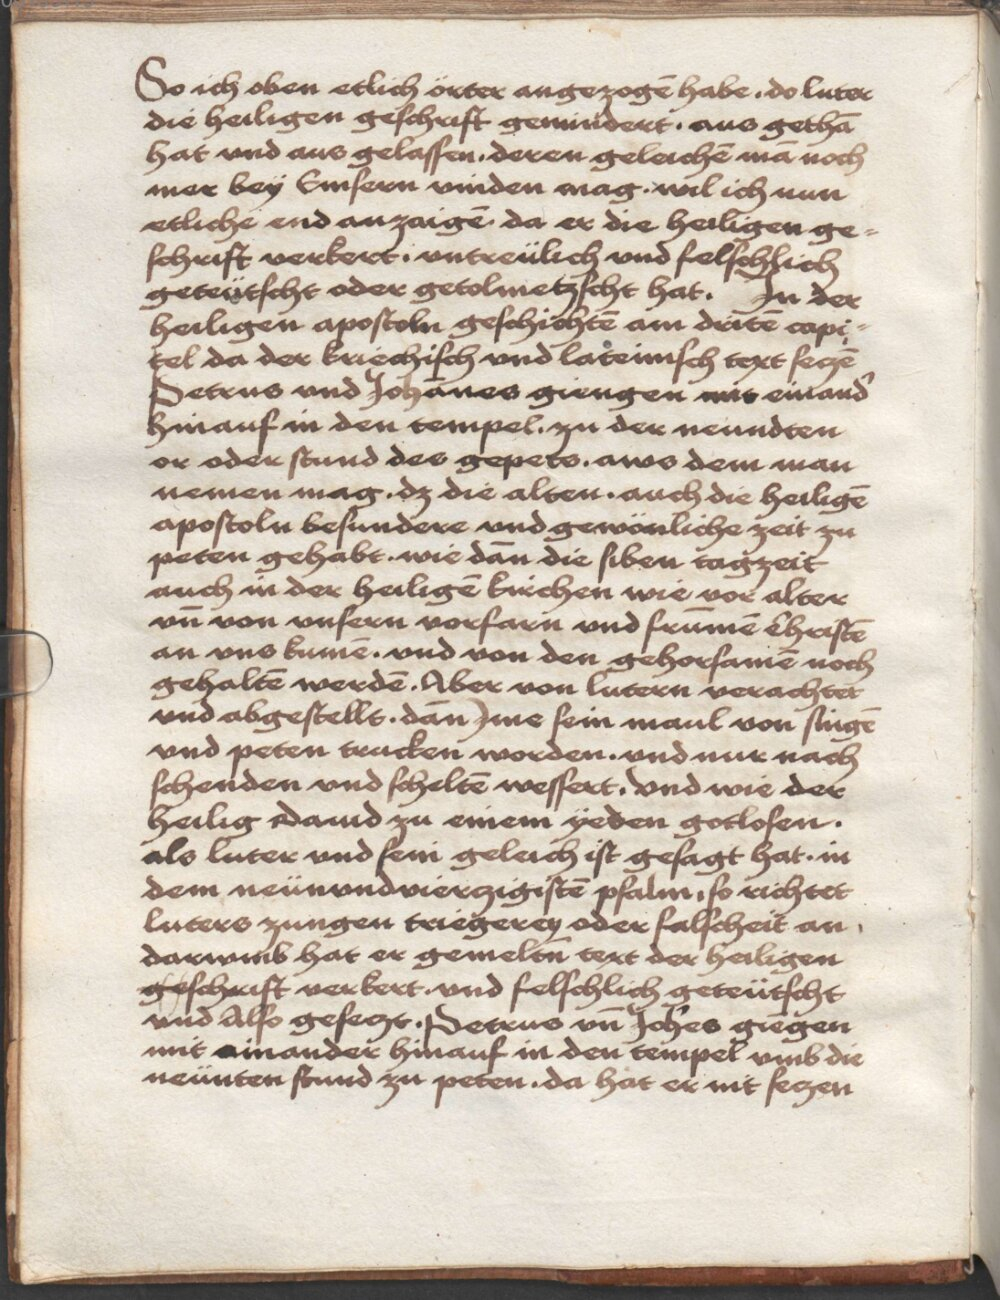 So ich oben etlich örter angezogē habe. do luter
die heiligen geschrift gemindert. aus gethā
hat vnd aus gelassen. deren geleichē mā noch
mer bey Emsern vinden mag. wil ich nun
etliche end anzaigē. da er die heiligen ge=
schrift verkert. vntreülich vnd felschlich
geteütscht oder getolmetzscht hat. In der
heiligen apostoln geschichtē am dritē capi=
tel da der kriechisch vnd lateinisch text seczē
Petrus vnd Johānes giengen mit einand'
hinauf in den tempel. zu der neundten
or oder stund des gepets. aws dem man
nemen mag. dz die alten. auch die heiligē
apostoln besundere vnd gewönliche zeit zu
peten gehabt. wie dān die siben tagzeit
auch in der heiligē kirchen wie vor alter
vn̄ von vnsern vorfarn vnd frūmē Christē
an vns kumē. vnd von den gehorsamē noch
gehaltē werdē. Aber von lutern verachtet
vnd abgestellt. dān Jme sein maul von singē
vnd peten trucken worden. vnd nur nach
schenden vnd scheltē wessert. Vnd wie der
heilig dauid zu einem yeden gotlosen.
als luter vnd sein geleich ist gesagt hat. in
dem neünvndvierzigistē psalm. so richtet
luters zungen triegerey oder falscheit an.
darwmb hat er gemeltn̄ text der heiligen
geschrift verkert. vnd felschlich geteütscht
vnd Also geseczt. Petrus vn̄ Joh'es giegen
mit ainander hinauf in den tempel vmb die
neünten stund zu peten. da hat er nit seczen